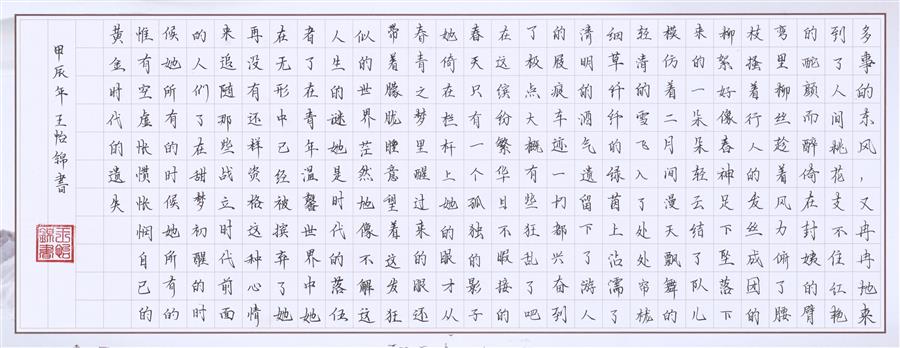 多事的东风，又冉冉地来
到了人间桃花支不住红艳
的酡颜而醉倚在封姨的臂
弯里柳丝趁着风力俯了腰
枝搔着行人的发丝成团的
柳絮好像春神足下坠落下
来的一朵朵轻云结了队儿
模仿着二月间漫天飘舞的
轻清的雪飞入了处处帘栊
细草纤纤的绿茵上沾濡了
清明的酒气遗留下了游人
的屐痕车迹一切都兴奋到
了极点大概有些狂乱了吧
在这缤纷繁华目不暇接的
春天只有一个孤独的影子
她倚在栏杆上她的眼才从
春青之梦里醒过来的眼还
带着朦胧腰意望着这发狂
似的世界茫然地像不解这
人生的谜她是时代的落伍
者了在青年温馨世界中她
在无形中已经被摈弃了她
再没有还样资格这种心情
来追随那些战立时代的前面
的人们了在甜梦初醒的时
候她所有的时候她所有的
惟有空虚怅惯怅惘自己的
黄金时代的遗失
甲辰年王怡锦书